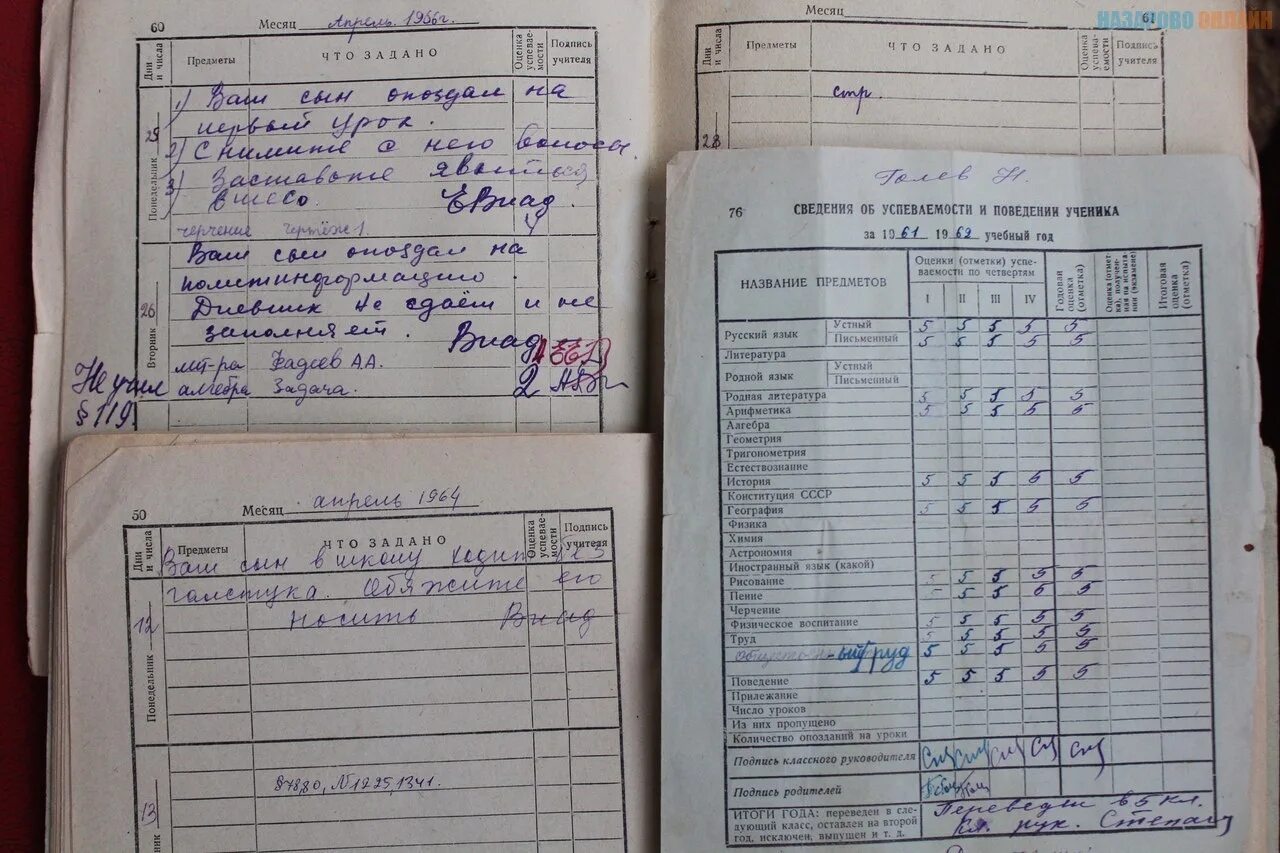 НАЗАРОВО ОНЛАЙН
60
Месяц Апрель 1966 г.
Дни и числа
Предметы
ЧТО ЗАДАНО
Оценка успеваемости
Подпись учителя
Понедельник 25
1) Ваш сын опоздал на
первый урок.
2) Снимите с него волосы.
3) Заставьте явиться
черчение чертёж 1.
Вторник 26
Ваш сын опоздал на
политинформацию.
Дневник не сдаёт и не
заполняет.
лит-ра Фадеев А.А.
алгебра Задача. 2
Не учил
§ 119.
61
Месяц
Дни и числа
Предметы
ЧТО ЗАДАНО
Оценка успеваемости
Подпись учителя
стр.
28
50
Месяц апрель 1964
Дни и числа
Предметы
ЧТО ЗАДАНО
Оценка успеваемости
Подпись учителя
Понедельник 12
Ваш сын в школу ходит без
галстука. Обяжите его
носить
13
№1225,1341.
Голев Н.
76
СВЕДЕНИЯ ОБ УСПЕВАЕМОСТИ И ПОВЕДЕНИИ УЧЕНИКА
за 1961 1962 учебный год
НАЗВАНИЕ ПРЕДМЕТОВ
Оценки (отметки) успеваемости по четвертям
I II III IV
Годовая оценка (отметка)
Оценка (отметка), полученная на испытании (экзамене)
Итоговая оценка (отметка)
Русский язык
Устный 5 5 5 5 5
Письменный 5 5 5 5 5
Литература
Родной язык
Устный
Письменный
Родная литература 5 5 5 5 5
Арифметика 5 5 5 5 5
Алгебра
Геометрия
Тригонометрия
Естествознание
История 5 5 5 5 5
Конституция СССР
География 5 5 5 5 5
Физика
Химия
Астрономия
Иностранный язык (какой)
Рисование 5 5 5 5 5
Пение - 5 5 5 5
Черчение
Физическое воспитание 5 5 5 5 5
Труд 5 5 5 5 5
труд 5 5 5 5 5
Поведение 5 5 5 5 5
Прилежание
Число уроков
Из них пропущено
Количество опозданий на уроки
Подпись классного руководителя
Подпись родителей
ИТОГИ ГОДА: переведен в следующий класс, оставлен на второй год, исключен, выпущен и т. д.
Переведен в 5 кл.
Кл. рук.